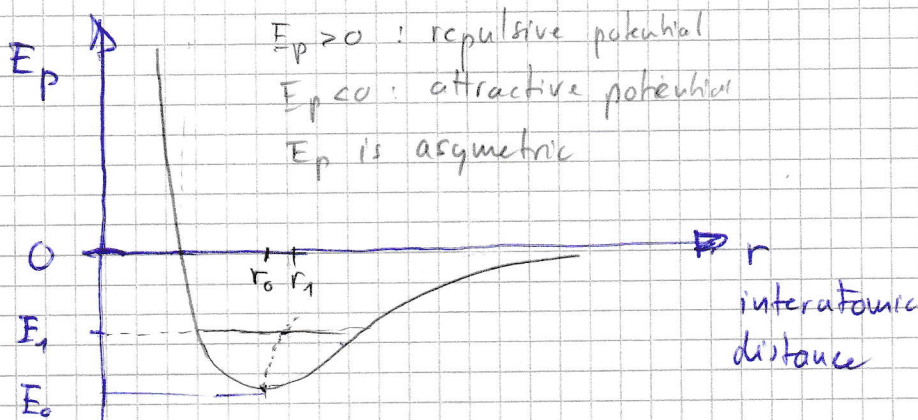 E_p > 0 : repulsive potential
E_p
E_p < 0 : attractive potential
E_p is asymetric
0
r₀ r₁
r
interatomic
distance
E₁
E₀